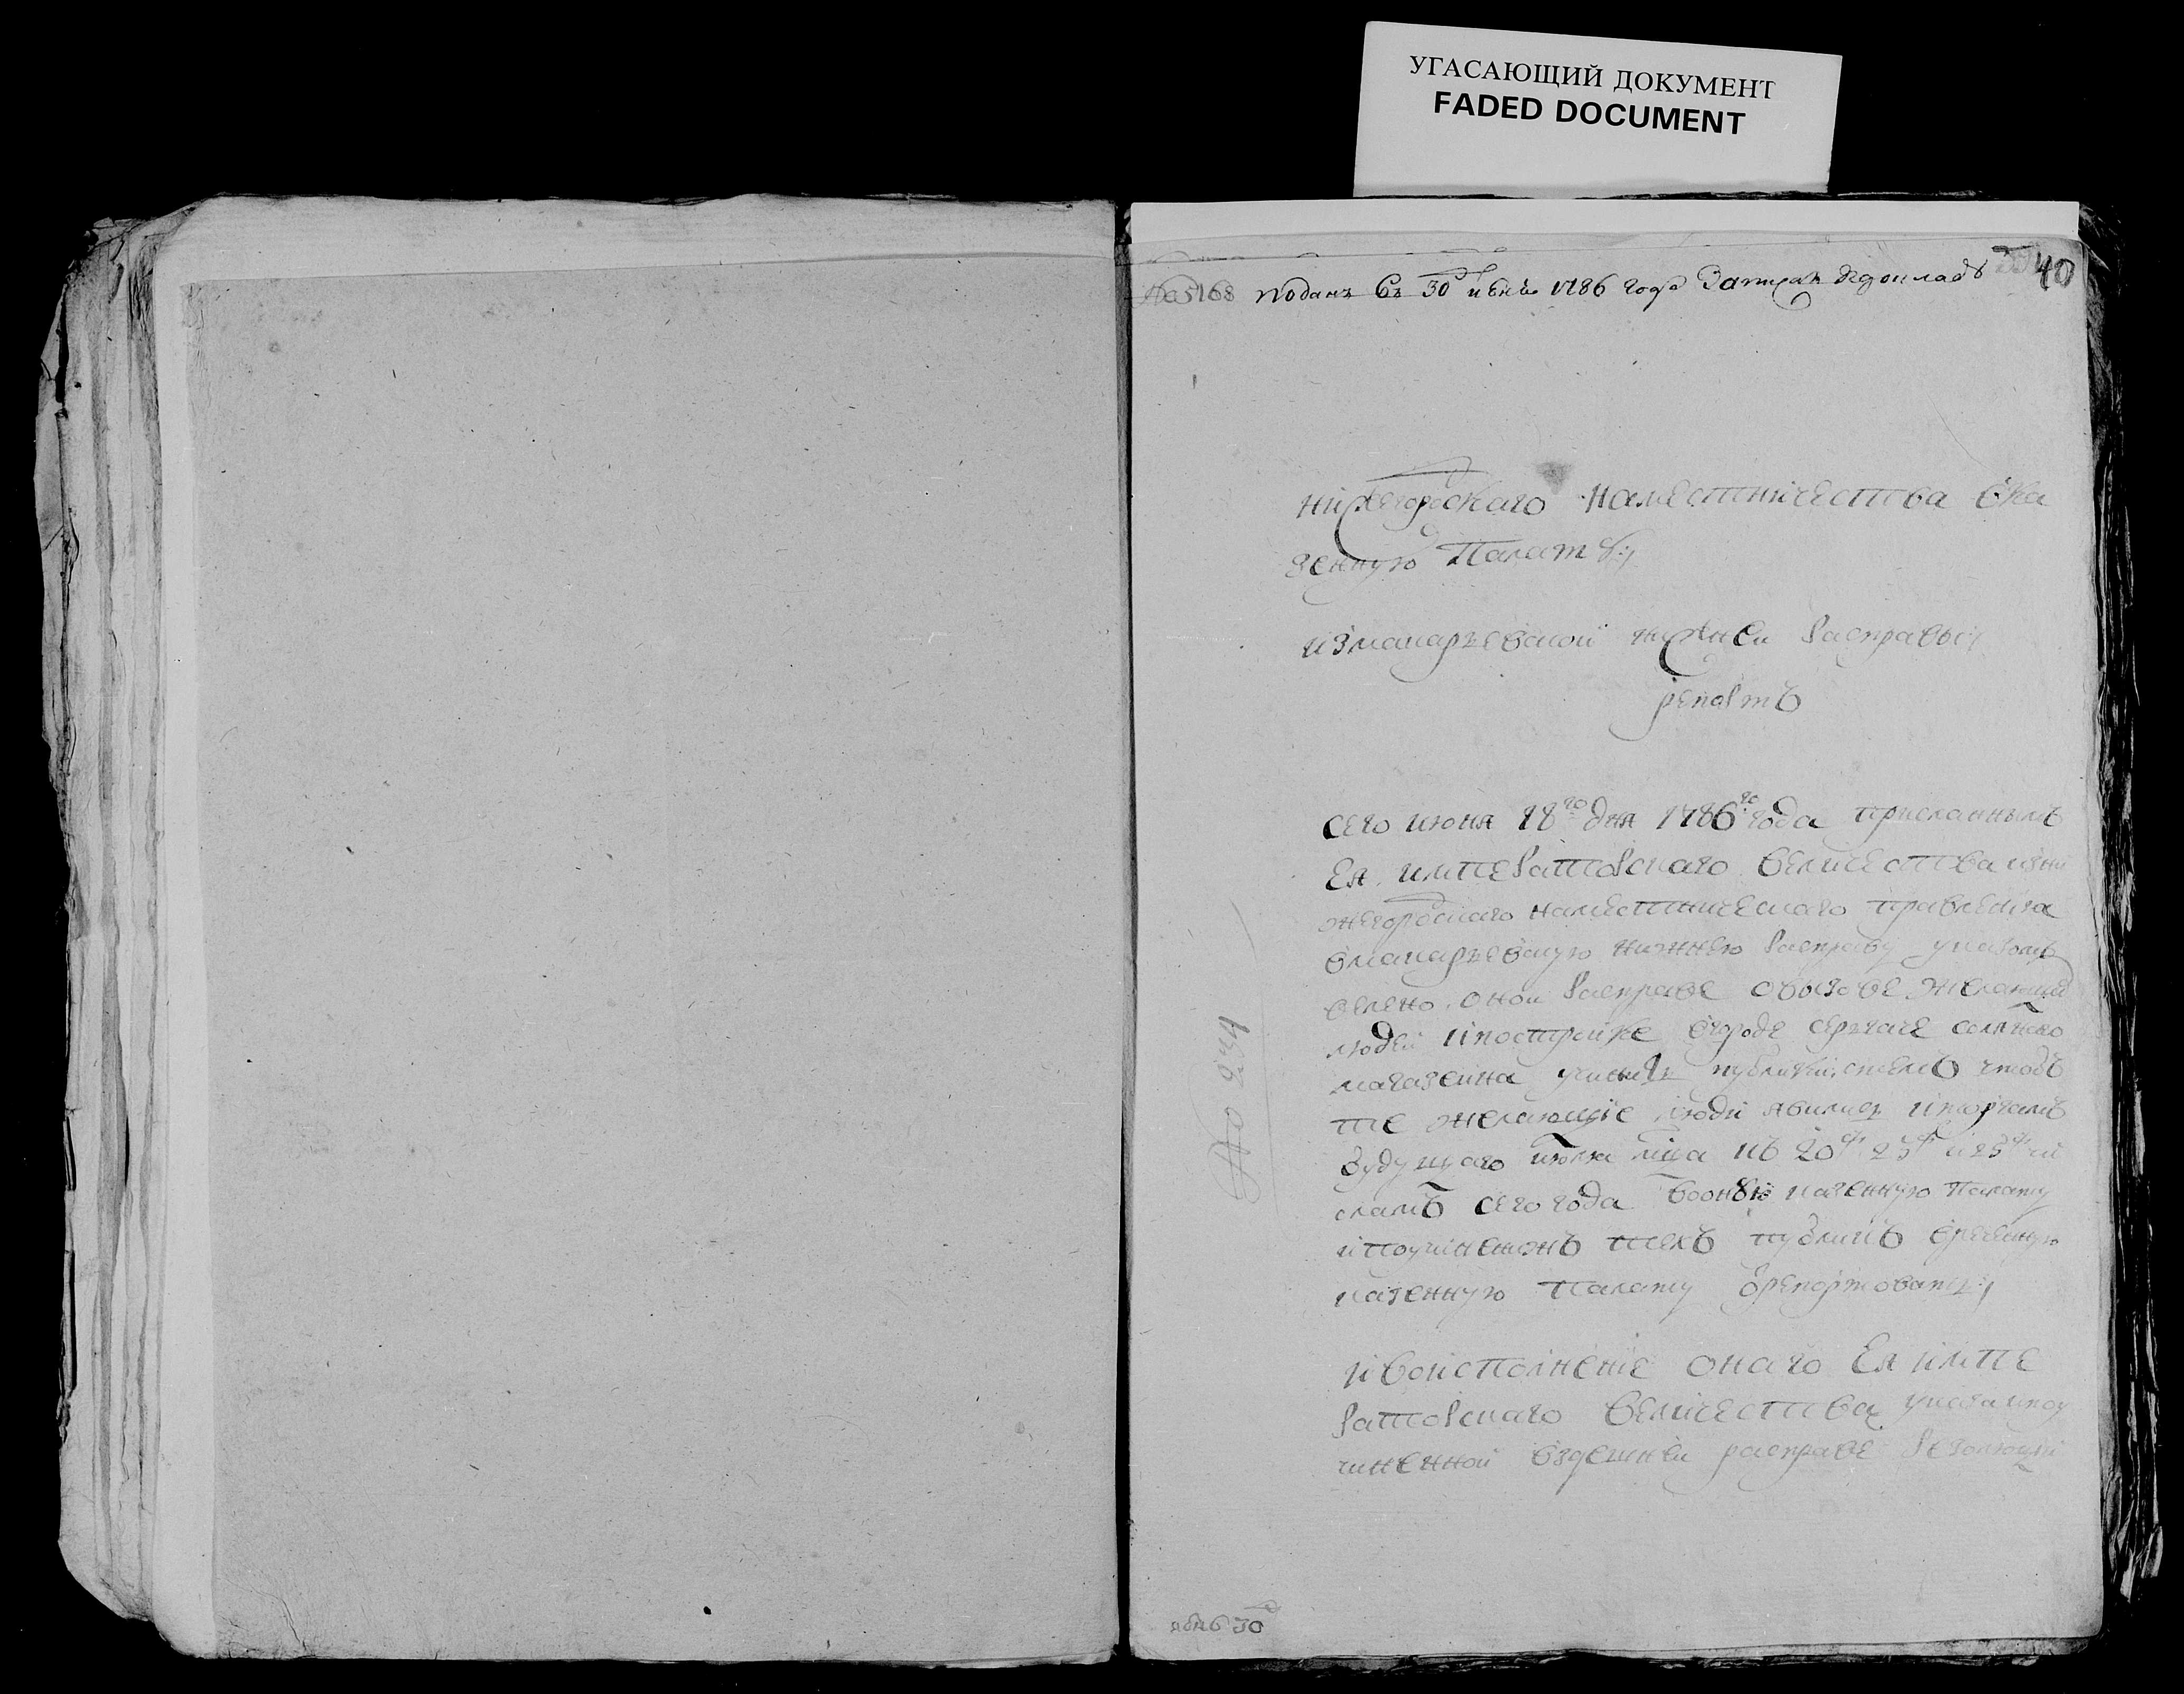 УГАСАЮЩИЙ ДОКУМЕНТ
FADED DOCUMENT
40
№ 5168 подан въ 30 июнь 1786 года Записав к докладу
нижегородскаго наместничества вка
зенную Палату:/
измакарьевской нижней расправы:/
репортъ
сего июня 18го дня 1786го года присланнымъ
Ея императорскаго величества изни
жегородскаго наместническаго правления
вмакарьевскую нижнею расправу указомъ
велено оной расправе овызове желающих
людей кпостройке вгороде сергаче соляного
магазеина учинить публики стемъ чтобъ
те желающие люди явились кторгамъ
будущаго июля мца къ 20 23 и 25
сламъ сего года вооную казенную Палату
ипоучинении техъ публикъ
казенную Палату врепортовать:/
ивоисполнение онаго Ея импе
раторскаго величества указа ипоу
чиненной вздешней расправе резолюции
№ 234
июнь 30